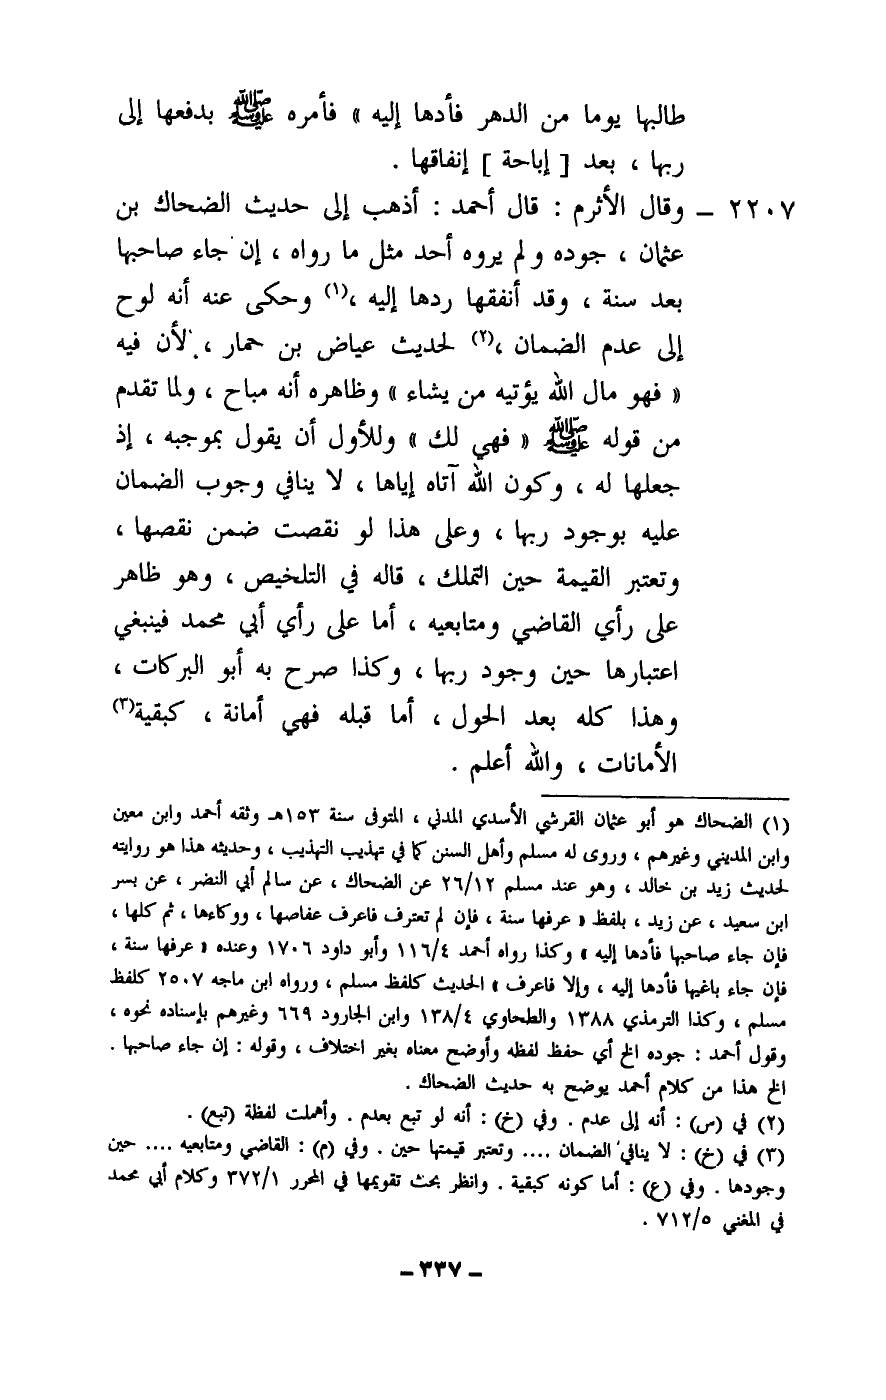 طالبها يوما من الدهر فأدها إليه » فأمره ﷺ بدفعها إلى
ربها ، بعد [ إباحة ] إنفاقها .
٢٢٠٧ ــ وقال الأثرم : قال أحمد : أذهب إلى حديث الضحاك بن
عثمان ، جوده ولم يروه أحد مثل ما رواه ، إن جاء صاحبها
بعد سنة ، وقد أنفقها ردها إليه ،(١) وحكى عنه أنه لوح
إلى عدم الضمان ،(٢) لحديث عياض بن حمار ، لأن فيه
« فهو مال الله يؤتيه من يشاء » وظاهره أنه مباح ، ولما تقدم
من قوله ﷺ « فهي لك » وللأول أن يقول بموجبه ، إذ
جعلها له ، وكون الله آتاه إياها ، لا ينافي وجوب الضمان
عليه بوجود ربها ، وعلى هذا لو نقصت ضمن نقصها ،
وتعتبر القيمة حين التملك ، قاله في التلخيص ، وهو ظاهر
على رأي القاضي ومتابعيه ، أما على رأي أبي محمد فينبغي
اعتبارها حين وجود ربها ، وكذا صرح به أبو البركات ،
وهذا كله بعد الحول ، أما قبله فهي أمانة ، كبقية(٣)
الأمانات ، والله أعلم .
(١) الضحاك هو أبو عثمان القرشي الأسدي المدني ، المتوفى سنة ١٥٣هـ وثقه أحمد وابن معين
وابن المديني وغيرهم ، وروى له مسلم وأهل السنن كما في تهذيب التهذيب ، وحديثه هذا هو روايته
لحديث زيد بن خالد ، وهو عند مسلم ٢٦/١٢ عن الضحاك ، عن سالم أبي النضر ، عن بسر
ابن سعيد ، عن زيد ، بلفظ « عرفها سنة ، فإن لم تعترف فاعرف عفاصها ، ووكاءها ، ثم كلها ،
فإن جاء صاحبها فأدها إليه » وكذا رواه أحمد ١١٦/٤ وأبو داود ١٧٠٦ وعنده « عرفها سنة ،
فإن جاء باغيها فأدها إليه ، وإلا فاعرف » الحديث كلفظ مسلم ، ورواه ابن ماجه ٢٥٠٧ كلفظ
مسلم ، وكذا الترمذي ١٣٨٨ والطحاوي ١٣٨/٤ وابن الجارود ٦٦٩ وغيرهم بإسناده نحوه ،
وقول أحمد : جوده الخ أي حفظ لفظه وأوضح معناه بغير اختلاف ، وقوله : إن جاء صاحبها .
الخ هذا من كلام أحمد يوضح به حديث الضحاك .
(٢) في (س) : أنه إلى عدم . وفي (خ) : أنه لو تبع بعدم . وأهملت لفظة (تبع) .
(٣) في (خ) : لا ينافي الضمان .... وتعتبر قيمتها حين . وفي (م) : القاضي ومتابعيه .... حين
وجودها . وفي (ع) : أما كونه كبقية . وانظر بحث تقويمها في المحرر ٣٧٢/١ وكلام أبي محمد
في المغني ٧١٢/٥ .
ــ ٣٣٧ ــ